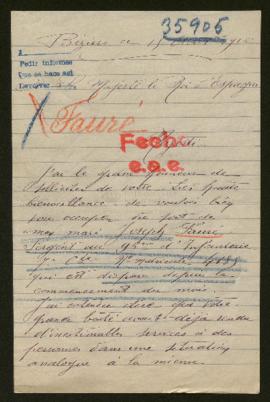 35905
Béziers le 15 1915
A.
Pedir informes
Que se hace así
Devolver
Sa Majesté le Roi d'Espagne
Fauré
Fech
e.s.e.
J'ai le grand honneur de
solliciter de votre très haute
bienveillance de vouloir bien
vous occuper du sort de
mon mari Joseph Fauré
Sergent au 96me d'Infanterie
Cie
qui est disparu depuis le
commencement du mois.
votre
grande bonté avait déjà rendu
d'inestimables services à des
personnes dans une situation
analogue à la mienne